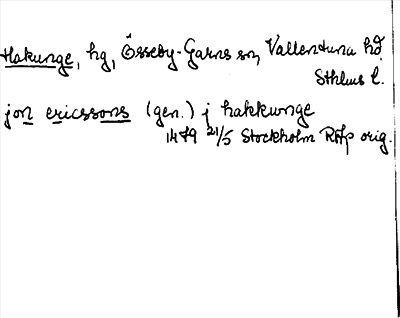 Hakunge, hg, Össeby-Garns sn, Vallentuna hd.
Sthlms l.
jon ericssons (gen.) j hakkwnge
1479 21/5 Stockholm RAp orig.